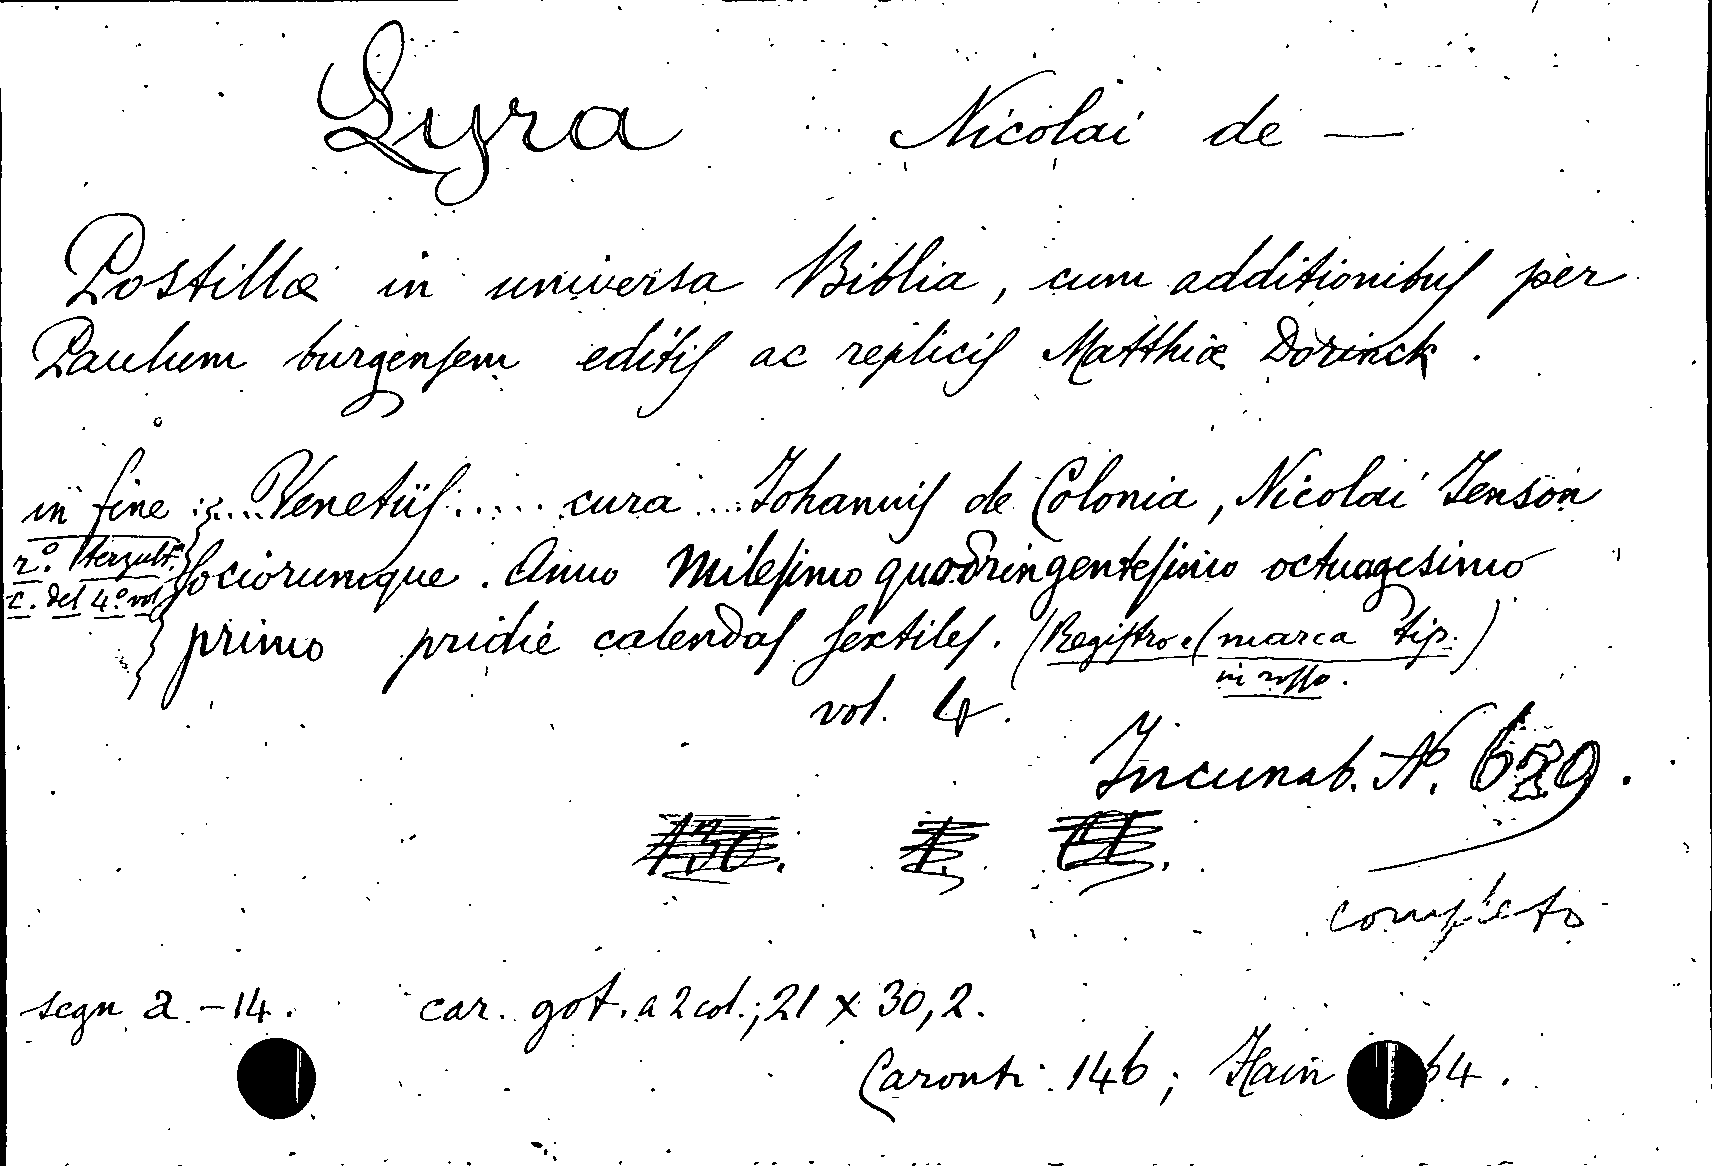 Lyra Nicolai de —
Postillæ in universa Biblia, cum additionibus per
Paulum burgensem editis ac replicis Matthiæ Dorinck.
in fine :... Venetiis ..... cura ... Johannis de Colonia, Nicolai Jenson
r.º terzult.ª sociorumque. Anno Milesimo quadringentesimo octuagesimo
c. del 4.º vol. primo pridie calendas sextiles. (Registro e (marca tip.)
in rosso.
vol. 4.
Incunab. N. 629.
completo
segn a - 14. car. got. a 2 col.; 21 x 30,2.
Caronti 146; Hain 64.